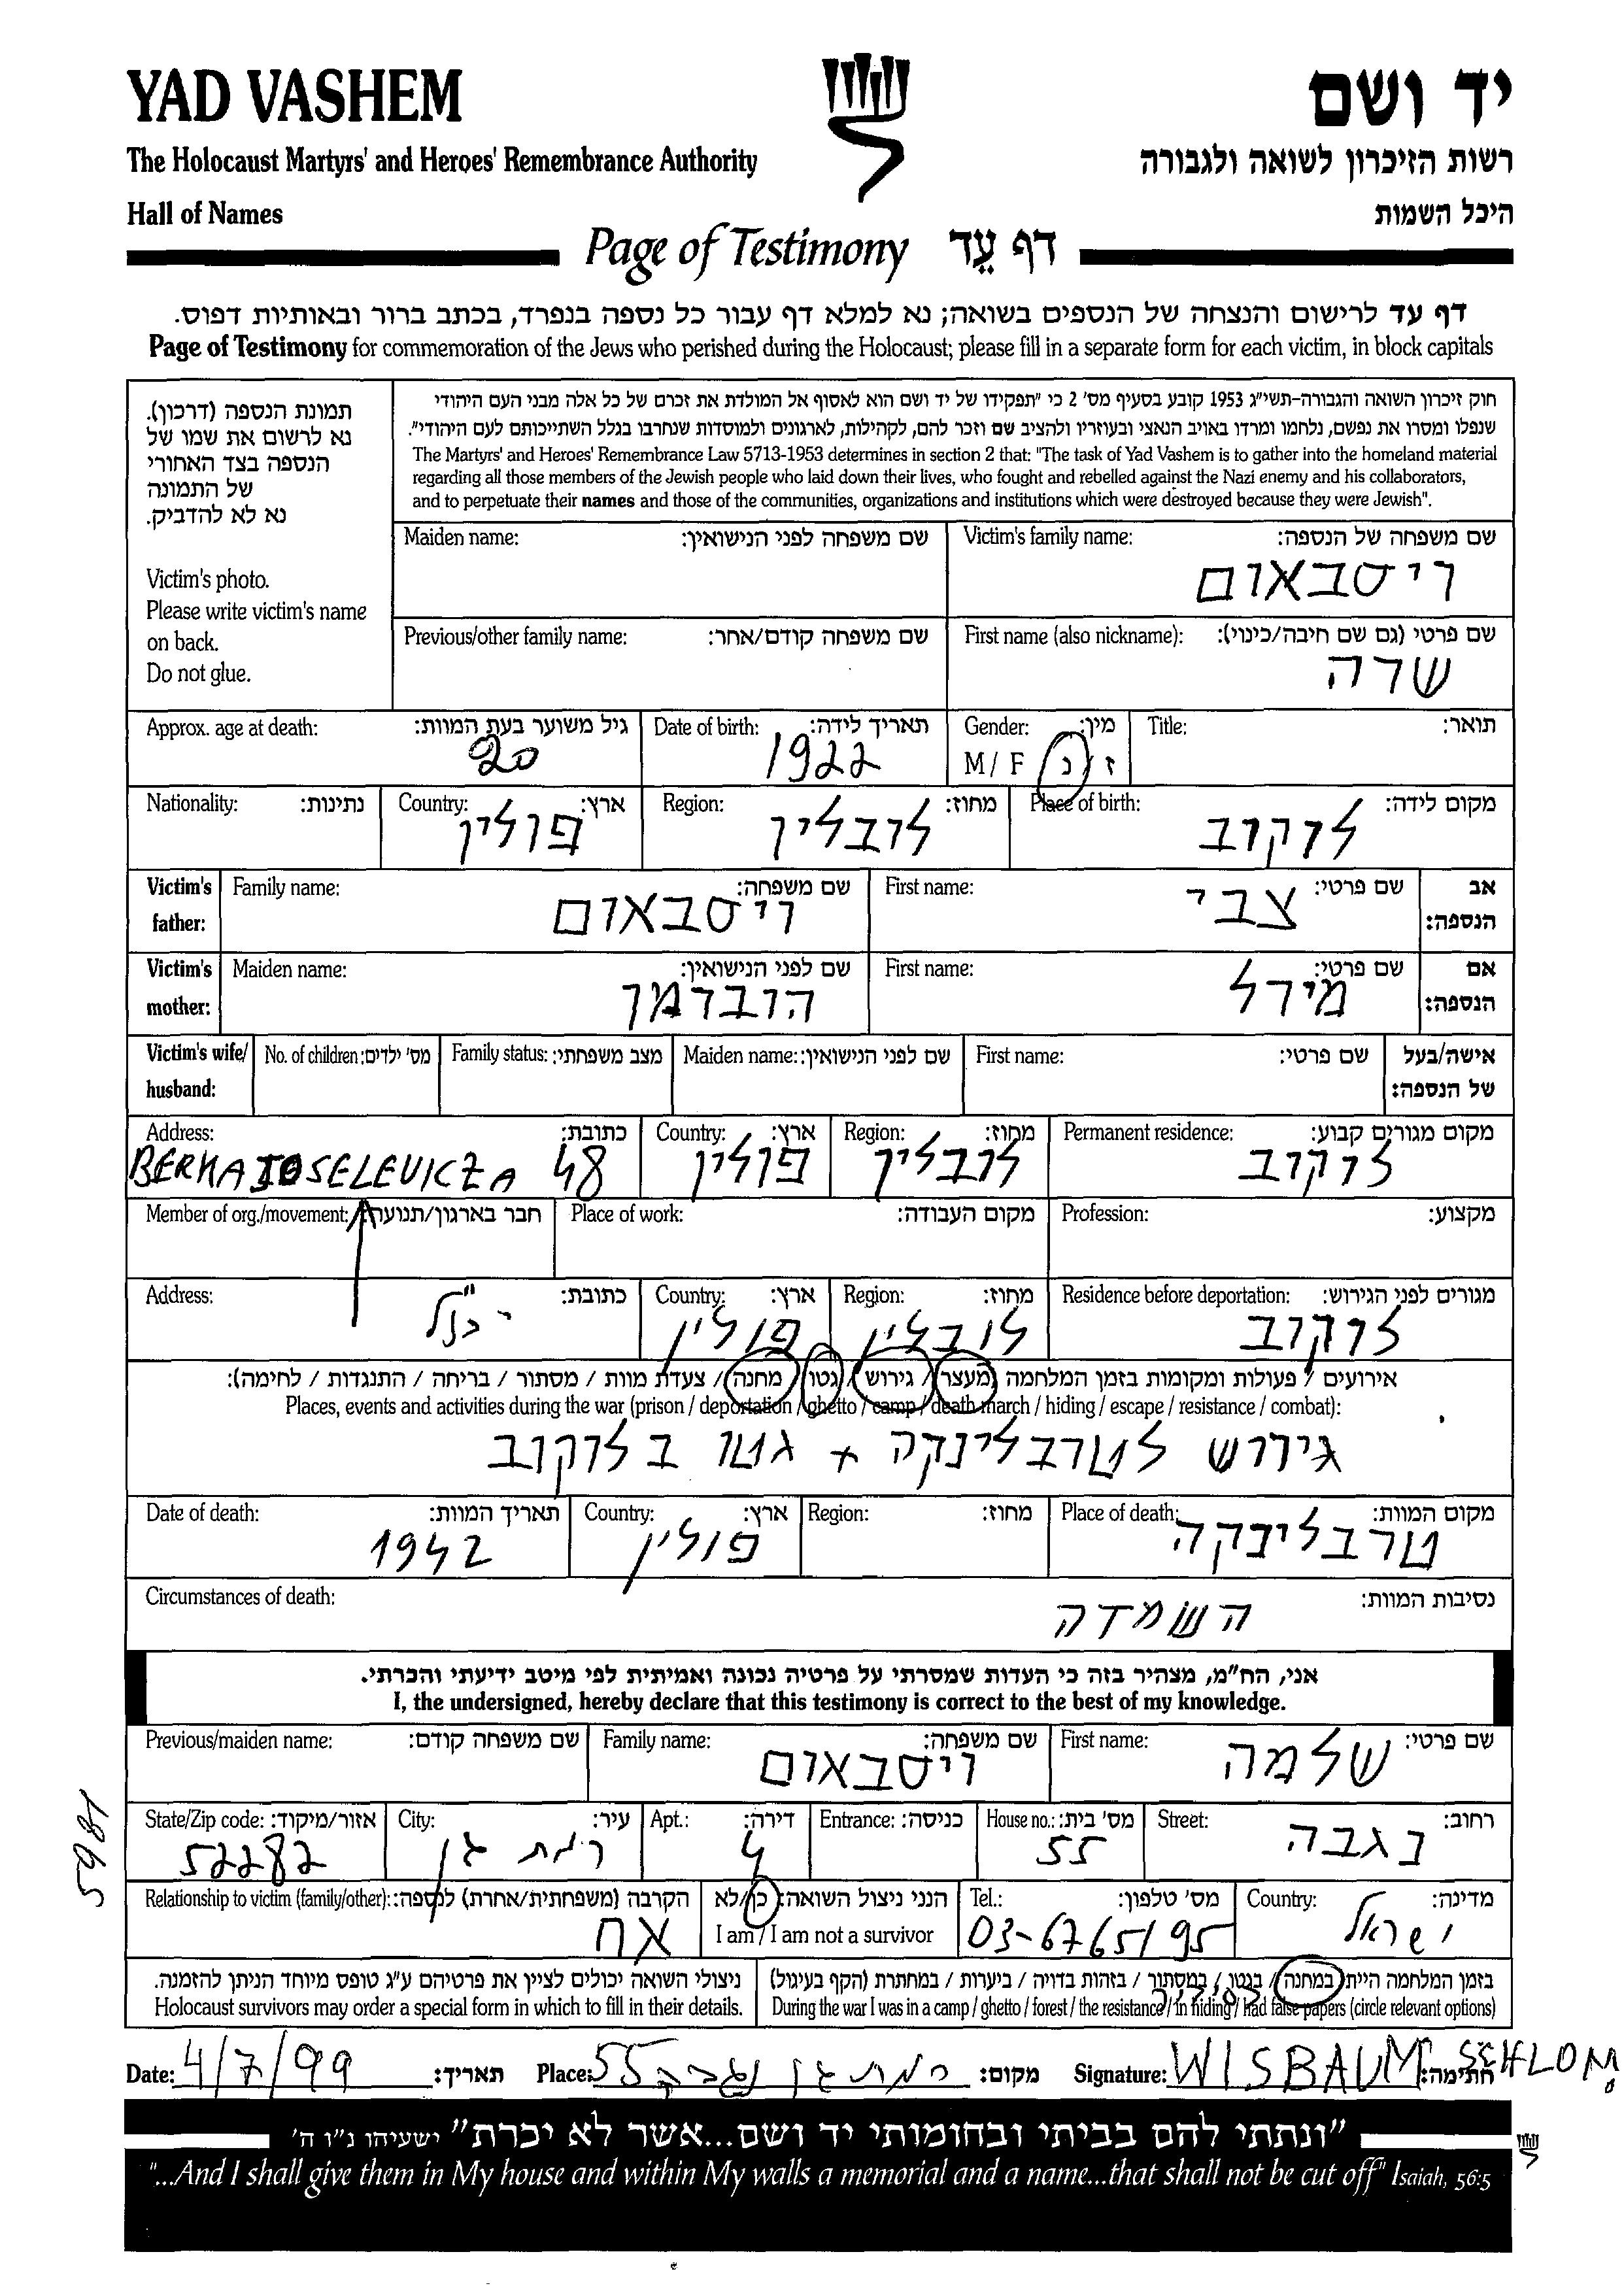 YAD VASHEM
יד ושם
The Holocaust Martyrs' and Heroes' Remembrance Authority
רשות הזיכרון לשואה ולגבורה
Hall of Names
היכל השמות
Page of Testimony דף עֵד
דף עד לרישום והנצחה של הנספים בשואה; נא למלא דף עבור כל נספה בנפרד, בכתב ברור ובאותיות דפוס.
Page of Testimony for commemoration of the Jews who perished during the Holocaust; please fill in a separate form for each victim, in block capitals
תמונת הנספה (דרכון).
נא לרשום את שמו של
הנספה בצד האחורי
של התמונה
נא לא להדביק.
Victim's photo.
Please write victim's name
on back.
Do not glue.
חוק זיכרון השואה והגבורה-תשי"ג 1953 קובע בסעיף מס' 2 כי "תפקידו של יד ושם הוא לאסוף אל המולדת את זכרם של כל אלה מבני העם היהודי
שנפלו ומסרו את נפשם, נלחמו ומרדו באויב הנאצי ובעוזריו ולהציב שם וזכר להם, לקהילות, לארגונים ולמוסדות שנחרבו בגלל השתייכותם לעם היהודי".
The Martyrs' and Heroes' Remembrance Law 5713-1953 determines in section 2 that: "The task of Yad Vashem is to gather into the homeland material
regarding all those members of the Jewish people who laid down their lives, who fought and rebelled against the Nazi enemy and his collaborators,
and to perpetuate their names and those of the communities, organizations and institutions which were destroyed because they were Jewish".
Victim's family name: שם משפחה של הנספה:
ויסבאום
Maiden name: שם משפחה לפני הנישואין:
First name (also nickname): שם פרטי (גם שם חיבה/כינוי):
שרה
Previous/other family name: שם משפחה קודם/אחר:
Title: תואר:
Gender: מין:
M / F ז / נ
Date of birth: תאריך לידה:
1922
Approx. age at death: גיל משוער בעת המוות:
20
Place of birth: מקום לידה:
לוקוב
Region: מחוז:
לובלין
Country: ארץ:
פולין
Nationality: נתינות:
Victim's father: אב הנספה:
First name: שם פרטי:
צבי
Family name: שם משפחה:
ויסבאום
Victim's mother: אם הנספה:
First name: שם פרטי:
מירל
Maiden name: שם לפני הנישואין:
הוברמן
Victim's wife/ husband: אישה/בעל של הנספה:
First name: שם פרטי:
Maiden name: שם לפני הנישואין:
Family status: מצב משפחתי:
No. of children: מס' ילדים:
Permanent residence: מקום מגורים קבוע:
לוקוב
Region: מחוז:
לובלין
Country: ארץ:
פולין
Address: כתובת:
BERKA JOSELEVICZA 48
Profession: מקצוע:
Place of work: מקום העבודה:
Member of org./movement: חבר בארגון/תנועה:
Residence before deportation: מגורים לפני הגירוש:
לוקוב
Region: מחוז:
לובלין
Country: ארץ:
פולין
Address: כתובת:
כנ"ל
אירועים / פעולות ומקומות בזמן המלחמה (מעצר / גירוש / גטו / מחנה / צעדת מוות / מסתור / בריחה / התנגדות / לחימה):
Places, events and activities during the war (prison / deportation / ghetto / camp / death march / hiding / escape / resistance / combat):
גירוש לטרבלינקה + גטו בלוקוב
Place of death: מקום המוות:
טרבלינקה
Region: מחוז:
Country: ארץ:
פולין
Date of death: תאריך המוות:
1942
Circumstances of death: נסיבות המוות:
השמדה
אני, הח"מ, מצהיר בזה כי העדות שמסרתי על פרטיה נכונה ואמיתית לפי מיטב ידיעתי והכרתי.
I, the undersigned, hereby declare that this testimony is correct to the best of my knowledge.
First name: שם פרטי:
שלמה
Family name: שם משפחה:
ויסבאום
Previous/maiden name: שם משפחה קודם:
Street: רחוב:
נגבה
House no.: מס' בית:
55
Entrance: כניסה:
Apt.: דירה:
4
City: עיר:
רמת גן
State/Zip code: אזור/מיקוד:
52282
5981
Country: מדינה:
ישראל
Tel.: מס' טלפון:
03-6765195
הנני ניצול השואה: כן/לא
I am / I am not a survivor
Relationship to victim (family/other): הקרבה (משפחתית/אחרת) לנספה:
אח
בזמן המלחמה הייתי במחנה / בגטו / במסתור / בזהות בדויה / ביערות / במחתרת (הקף בעיגול)
During the war I was in a camp / ghetto / forest / the resistance / in hiding / had false papers (circle relevant options)
ניצולי השואה יכולים לציין את פרטיהם ע"ג טופס מיוחד הניתן להזמנה.
Holocaust survivors may order a special form in which to fill in their details.
Date: 4/7/99 תאריך: Place: רמת גן נגבה 55 מקום: Signature: WISBAUM SCHLOM חתימה:
"ונתתי להם בביתי ובחומותי יד ושם...אשר לא יכרת" ישעיהו נ"ו ה'
"...And I shall give them in My house and within My walls a memorial and a name...that shall not be cut off" Isaiah, 56:5